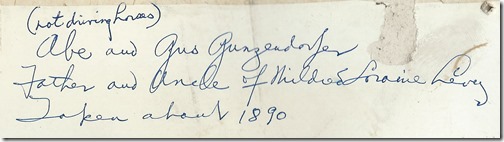 (not driving horses)
Abe and Gus Gunzendorfer
Father and Uncle of Mildred Loraine Levy
Taken about 1890